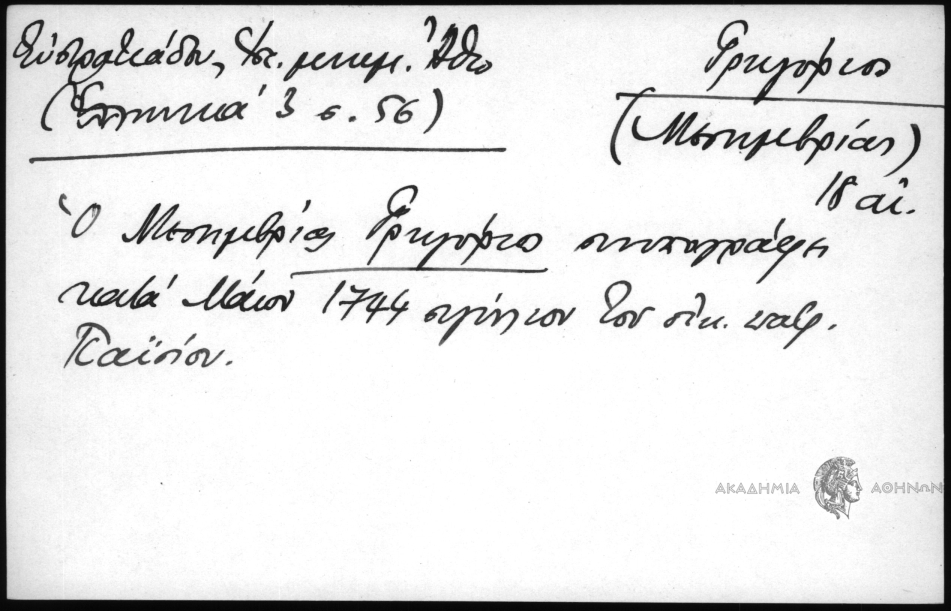 Εὐστρατιάδου, Ἱστ. μνημ. Ἄθω
(Ἑλληνικά 3 σ. 56)
Γρηγόριος
(Μεσημβρίας)
18 αἰ.
Ὁ Μεσημβρίας Γρηγόριος συνυπογράφει
κατά Μάιον 1744 σιγίλλιον τοῦ οἰκ. πατρ.
Παϊσίου.
ΑΚΑΔΗΜΙΑ ΑΘΗΝΩΝ